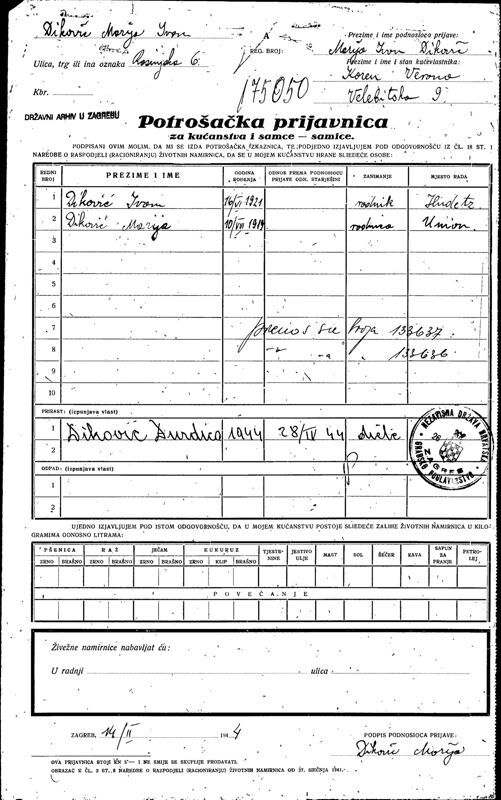 Diković Marija Ivon
Ulica, trg ili ina oznaka
Kbr.
DRŽAVNI ARHIV U ZAGREBU
A
REG. BROJ:
175050
Prezime i ime podnosioca prijave:
Marija Ivon Diković
Prezime i ime i stan kućevlastnika:
Koren Verona
Velebitska 9
Potrošačka prijavnica
za kućanstva i samce – samice.
PODPISANI OVIM MOLIM, DA MI SE IZDA POTROŠAČKA ISKAZNICA, TE PODJEDNO IZJAVLJUJEM POD ODGOVORNOŠĆU IZ ČL. 18 ST. 1
NAREDBE O RASPODJELI (RACIONIRANJU) ŽIVOTNIH NAMIRNICA, DA SE U MOJEM KUĆANSTVU HRANE SLIJEDEĆE OSOBE:
REDNI BROJ PREZIME I IME GODINA RODJENJA ODNOS PREMA PODNOSIOCU PRIJAVE ODN. STARJEŠINI ZANIMANJE MJESTO RADA
1 Diković Ivon 16/VI 1921 radnik
2 Diković Marija 10/VII 1919 radnica Union
3
4
5
6
7 prenos sa broja 133637
8 133636
9
10
PRIRAST: (izpunjava vlast)
1 Diković Đurđica 1944 28/IV 44 dijete
2
NEZAVISNA DRŽAVA HRVATSKA
GRADSKO POGLAVARSTVO
ZAGREB
ODPAD: (izpunjava vlast)
1
2
UJEDNO IZJAVLJUJEM POD ISTOM ODGOVORNOŠĆU, DA U MOJEM KUĆANSTVU POSTOJE SLIJEDEĆE ZALIHE ŽIVOTNIH NAMIRNICA U KILO-
GRAMIMA ODNOSNO LITRAMA:
PŠENICA RAŽ JEČAM KUKURUZ TJESTE-NINE JESTIVO ULJE MAST SOL ŠEĆER KAVA SAPUN ZA PRANJE PETRO-LEJ
ZRNO BRAŠNO ZRNO BRAŠNO ZRNO BRAŠNO ZRNO KLIP BRAŠNO
POVEĆANJE
Živežne namirnice nabavljat ću:
U radnji ulica
ZAGREB, 14/II 1944
PODPIS PODNOSIOCA PRIJAVE:
Diković Marija
OVA PRIJAVNICA STOJI KN 5— I NE SMIJE SE SKUPLJE PRODAVATI.
OBRAZAC K ČL. 2 ST. 2 NAREDBE O RAZPODJELI (RACIONIRANJU) ŽIVOTNIH NAMIRNICA OD 27. SIEČNJA 1941.